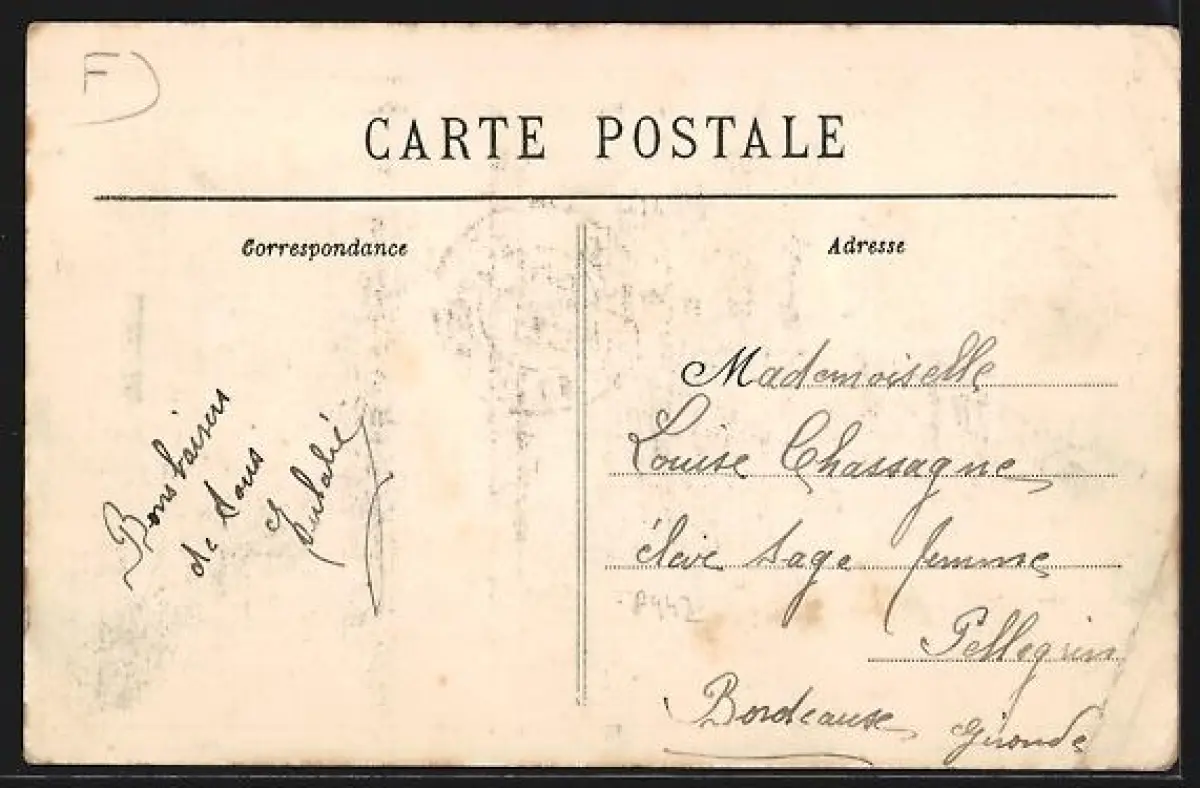 F
CARTE POSTALE
Correspondance
Adresse
Bons baisers
de tous
Mademoiselle
Louise Chassagne
élève sage femme
Pellegrin
Bordeaux Gironde